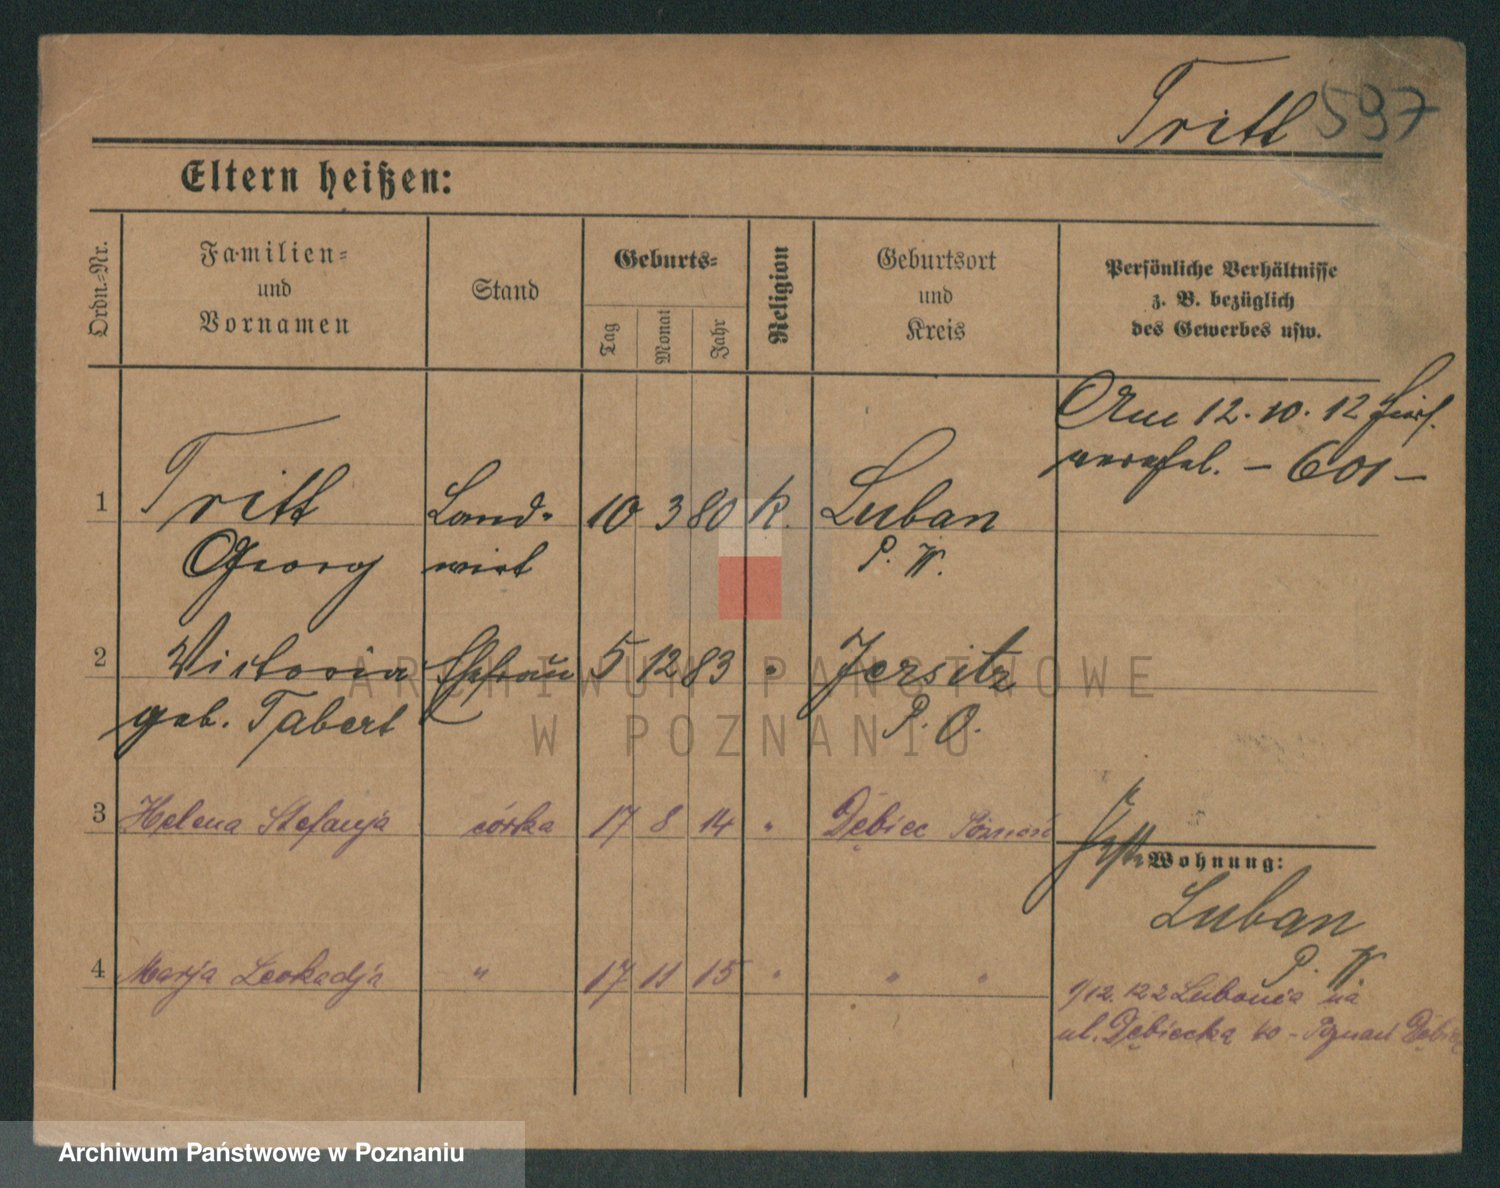 Tritt 597
Eltern heißen:
Ordn.-Nr.
Familien-
und
Vornamen
Stand
Geburts-
Tag
Monat
Jahr
Religion
Geburtsort
und
Kreis
Persönliche Verhältnisse
z. B. bezüglich
des Gewerbes usw.
Am 12.10.12
- 601 -
1 Tritt Land- 10 3 80 k. Luban
Georg wirt P. W.
2 Victoria Ehefrau 5 12 83 " Jersitz
geb. Tabert P. O.
3 Helena Stefanja córka 17 8 14 " Dębiec Poznań
Wohnung:
Luban
P. W.
4 Marja Leokadja " 17 11 15 " " "
12.122 Lubonia na
ul. Dębiecką 10 - Poznań Dębiec
ARCHIWUM PAŃSTWOWE
W POZNANIU
Archiwum Państwowe w Poznaniu